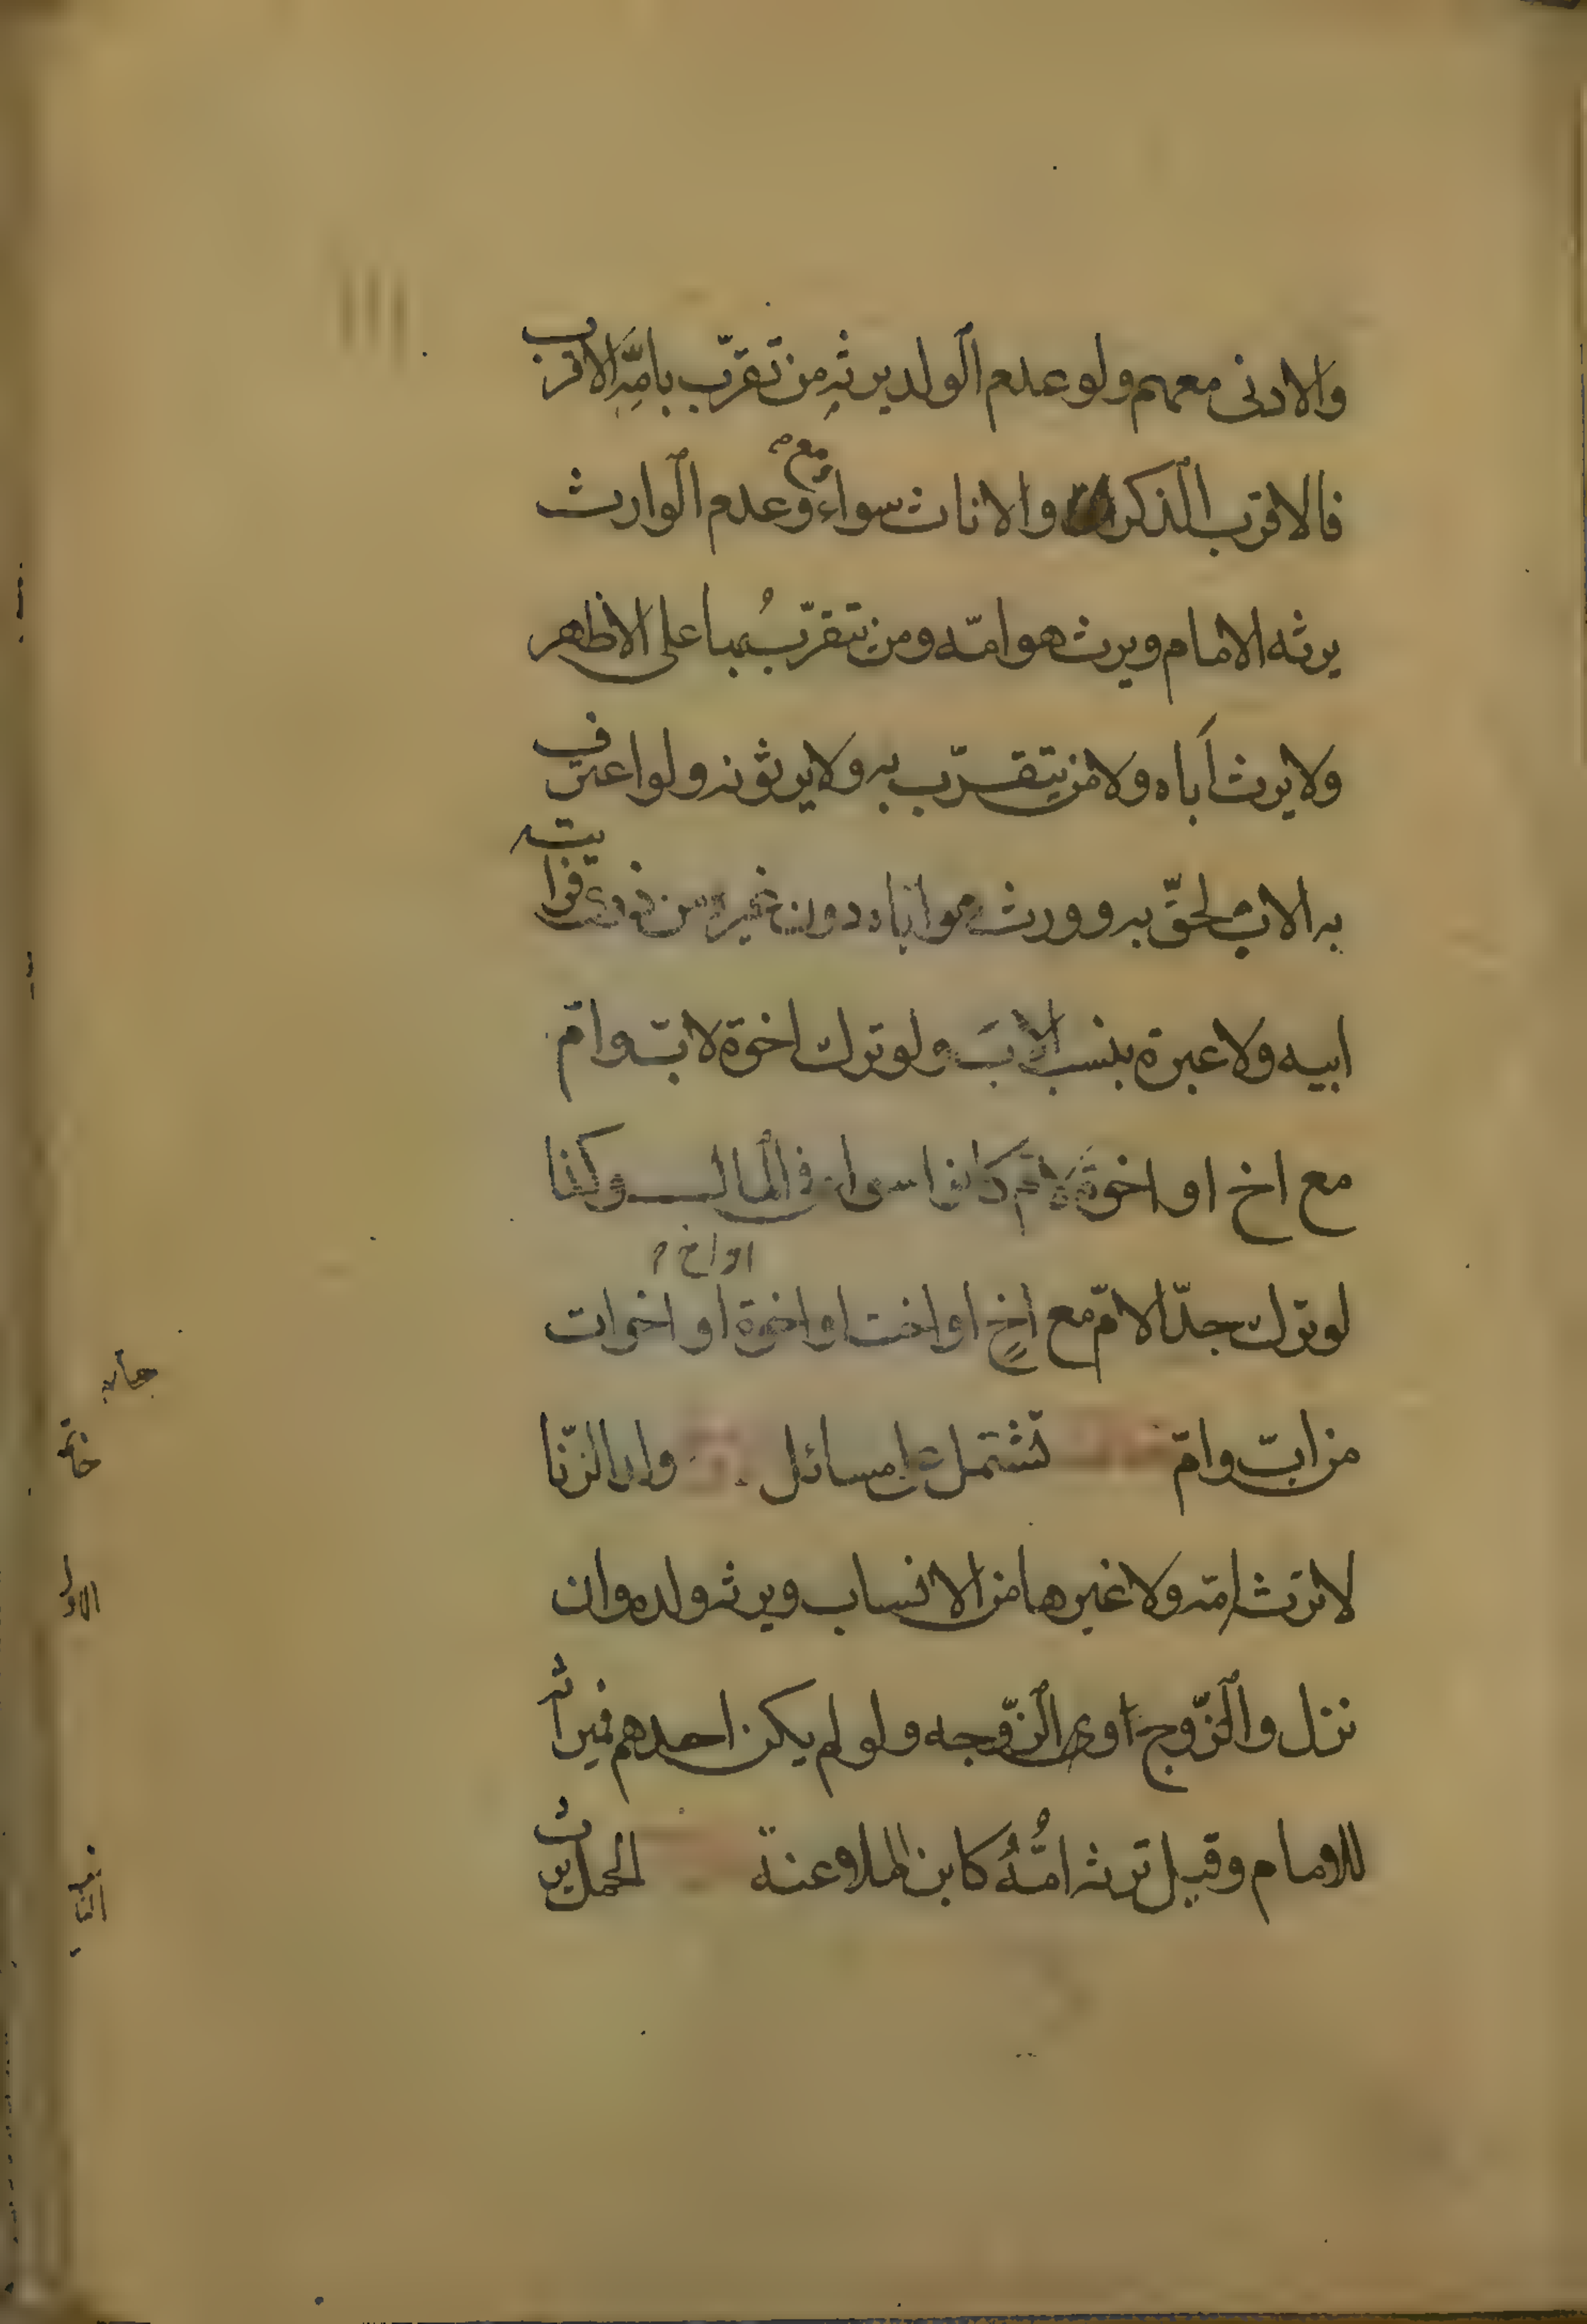 والادنى معهم ولو عدم الولد يرثه من تقرّب بامّه الاقرب
فالاقرب الذكر والاناث سواء ومع عدم الوارث
يرثه الامام ويرث هو امّه ومن يتقرّب بها على الاظهر
ولا يرث اباه ولا من يتقرّب به ولا يرثونه ولو اعترف
به الاب لحقّ به وورث هو اباه دون غيره من ذوى قرابته
ابيه ولا عبرة بنسب الاب ولو ترك اخوة لاب وامّ
مع اخ او اخوة لامّ كانوا سواء فى المال وكذا
لو ترك جدّ الامّ مع اخٍ او اخت او اخوة او اخوات
او اخ
من ابّ وامّ تشتمل على مسائل ولد الزّنا
لا ترث امّه ولا غيرها من الانساب ويرثه ولده وان
نزل والزّوج او الزّوجه ولو لم يكن احدهم فميراثه
للامام وقيل ترثه امُّهُ كابن الملاعنة الحمل يرث
خاتمة
الاولى
الثانية